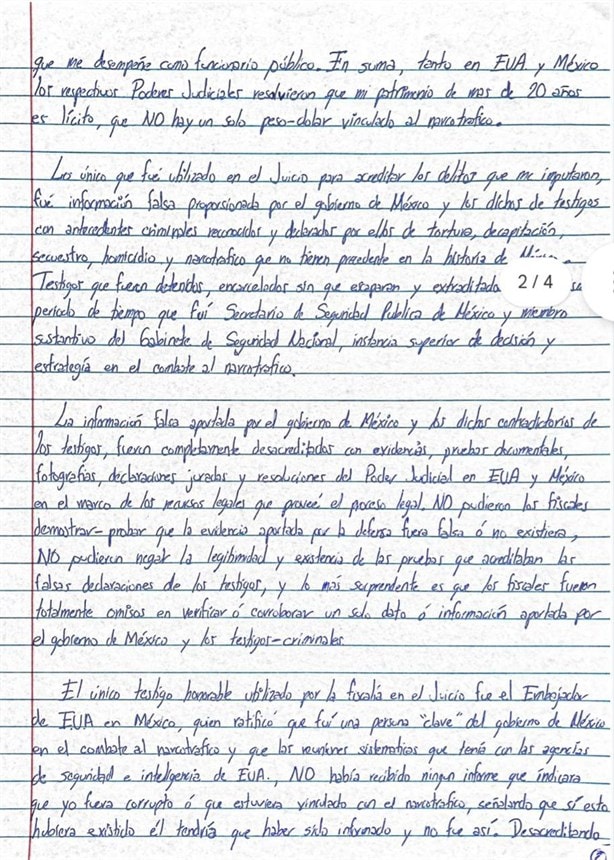 que me desempeñe como funcionario público. En suma, tanto en EUA y México
los respectivos Poderes Judiciales resolvieron que mi patrimonio de mas de 20 años
es lícito, que NO hay un solo peso-dolar vinculado al narcotrafico.
Lo único que fué utilizado en el Juicio para acreditar los delitos que me imputaron,
fué información falsa proporsionada por el gobierno de México y los dichos de testigos
con antecedentes criminales reconocidos y declarados por ellos de tortura, decapitación,
secuestro, homicidio y narcotrafico que no tienen precedente en la historia de
Testigos que fueron detenidos, encarcelados sin que escaparan y
2/4
periodo de tiempo que fuí Secretario de Seguridad Publica de México y miembro
sustantivo del Gabinete de Seguridad Nacional, instancia superior de decisión y
estrategia en el combate al narcotrafico.
La información falsa aportada por el gobierno de México y los dichos contradictorios de
los testigos, fueron completamente desacreditados con evidencias, pruebas documentales,
fotografias, declaraciones juradas y resoluciones del Poder Judicial en EUA y México
en el marco de los recursos legales que proveé el proceso legal. NO pudieron los fiscales
demostrar-probar que la evidencia aportada por la defensa fuera falsa ó no existiera,
NO pudieron negar la legitimidad y existencia de las pruebas que acreditaban las
falsas declaraciones de los testigos, y lo más sorprendente es que los fiscales fueron
totalmente omisos en verificar ó corroborar un solo dato ó información aportada por
el gobierno de México y los testigos-criminales
El único testigo honorable utilizado por la fiscalía en el Juicio fue el Embajador
de EUA en México, quien ratificó que fuí una persona "clave" del gobierno de México
en el combate al narcotrafico y que las reuniones sistematicas que tenía con las agencias
de seguridad e inteligencia de EUA., NO había recibido ningun informe que indicara
que yo fuera corrupto ó que estuviera vinculado con el narcotrafico, señalando que sí esto
hubiera existido él tendría que haber sido informado y no fue así. Desacreditando